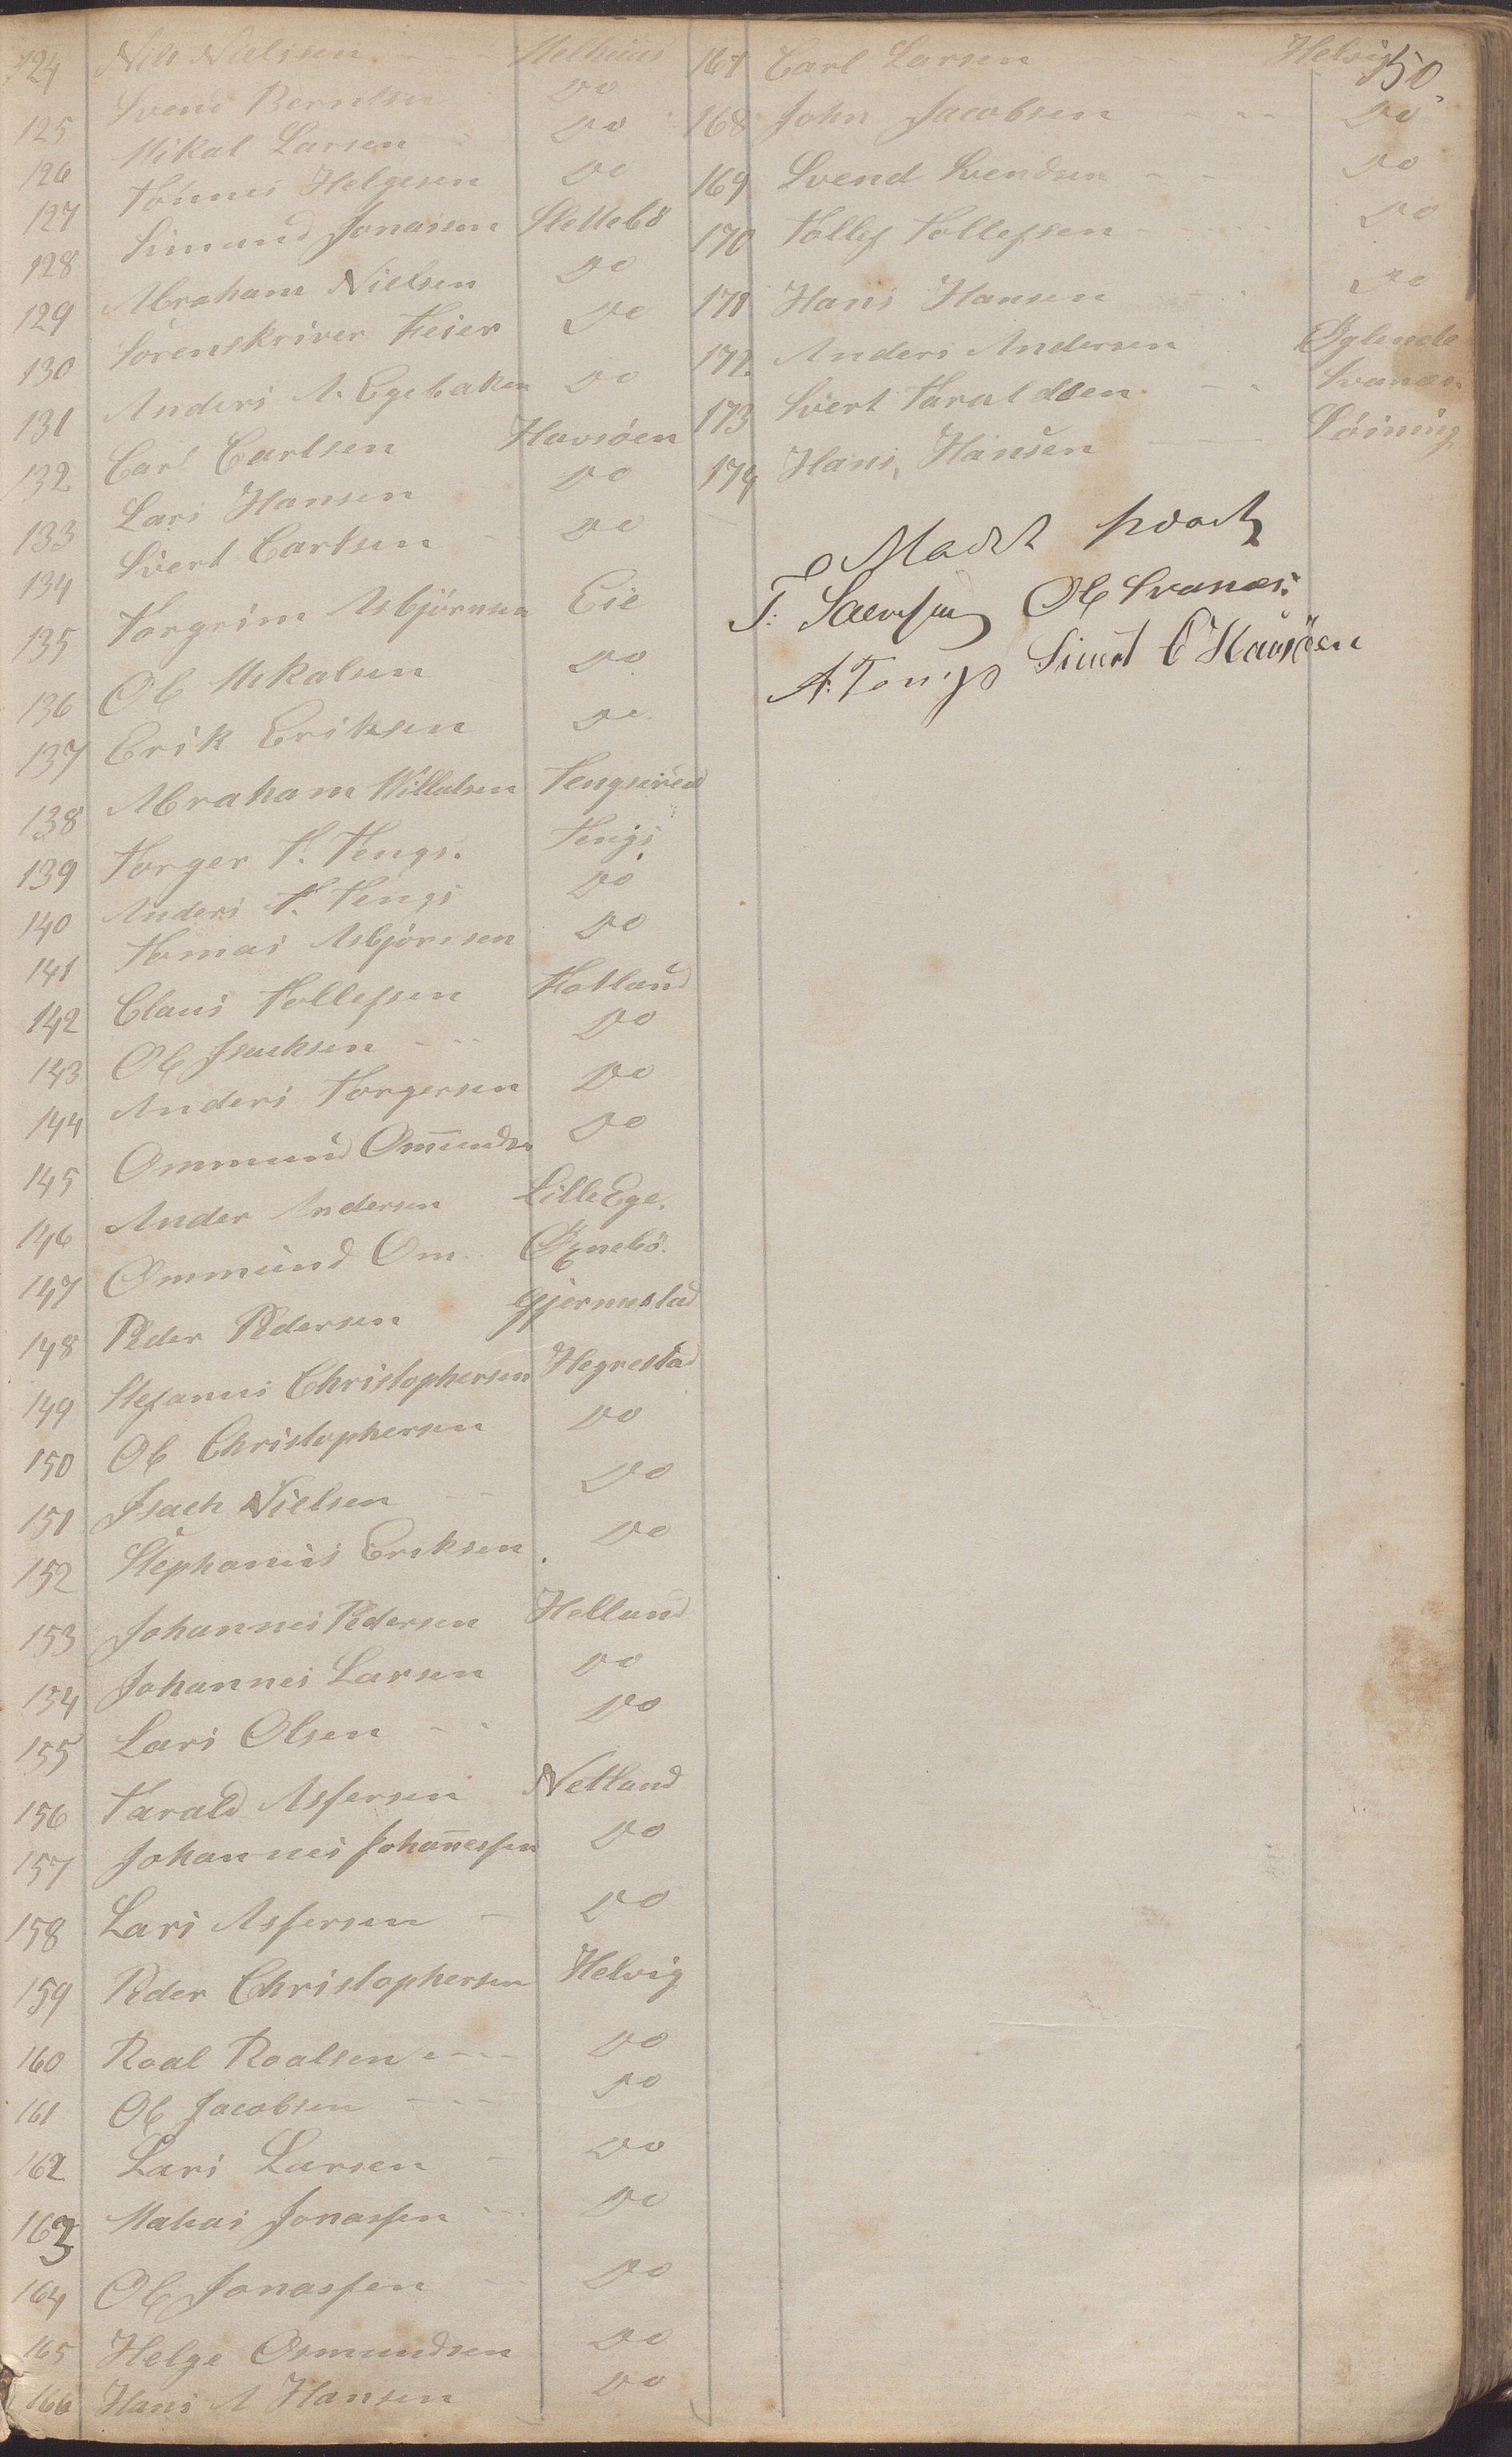 50.
124 Nils Nielsen Melhuus
125 Svend Berntsen Do
126 Mikal Larsen Do
127 Tönnes Helgesen Do
128 Simund Jonassen Slettebö
129 Abraham Nielsen Do
130 Sorenskriver Feier Do
131 Anders A. Egebaken Do
132 Carl Carlsen Havsöen
133 Lars Hansen Do
134 Sivert Carlsen Do
135 Torgrim Asbjörnsen Eie
136 Ole Mikalsen Do
137 Erik Eriksen Do
138 Abraham Willulsen Tengsareid
139 Torger T. Tengs. Tengs
140 Anders T. Tengs Do
141 Tomas Asbjörnsen Do
142 Claus Tollefsen Hotland
143 Ole Isacksen Do
144 Anders Torgersen Do
145 Ommund Om̅undsen Do
146 Ander Andersen Lille Ege.
147 Ommund Om. Øgnebö.
148 Peder Pedersen Gjermestad
149 Stefanus Christophersen Hegrestad
150 Ole Christophersen Do
151 Isach Nielsen Do
152 Stephanus Eriksen Do
153 Johannes Pedersen Helland
154 Johannes Larsen Do
155 Lars Olsen Do
156 Tarald Assersen Netland
157 Johannes Johan̅essen Do
158 Lars Assersen Do
159 Peder Christophersen Helvig
160 Roal Roalsen Do
161 Ole Jacobsen Do
162 Lars Larsen Do
163 Mathias Jonassen Do
164 Ole Jonassen Do
165 Helge Osmundsen Do
166 Hans A Hansen Do
167 Carl Larsen Helvig
168 John Jacobsen Do
169 Svend Svendsen Do
170 Tollef Tollefsen Do
171 Hans Hansen Do
172. Anders Andersen Øglende
173 Sivert Taraldsen Svanæs.
174 Hans Hansen
T. Ole Svanæs.
A. Tengs Sivert C Havsöen